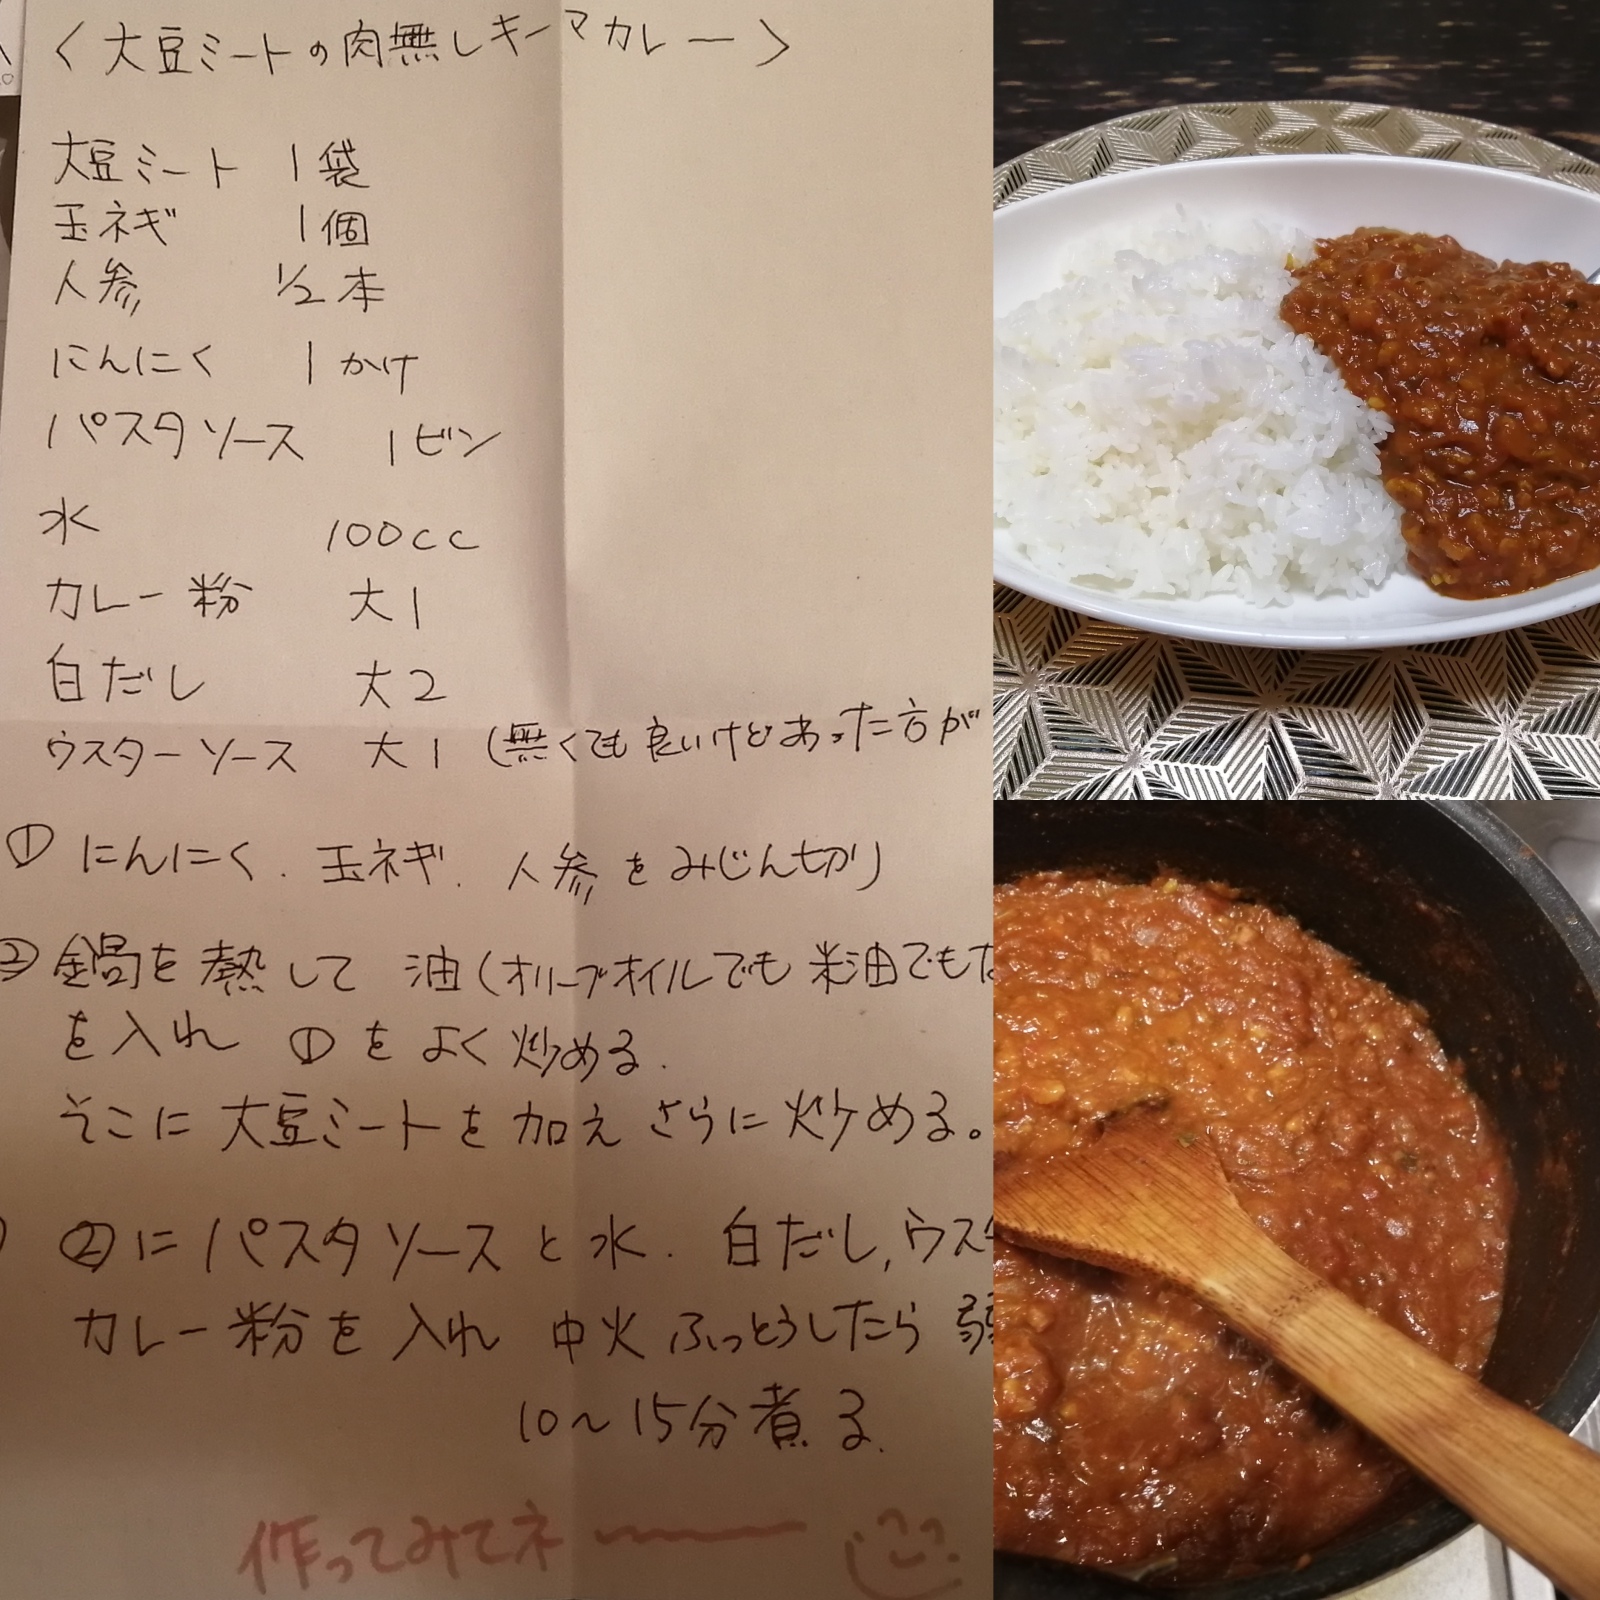 〈大豆ミートの肉無しキーマカレー〉
大豆ミート 1袋
玉ネギ 1個
人参 1/2本
にんにく 1かけ
パスタソース 1ビン
水 100cc
カレー粉 大1
白だし 大2
ウスターソース 大1 (無くても良いけどあった方が
① にんにく. 玉ネギ. 人参をみじん切り
② 鍋を熱して 油(オリーブオイルでも米油でも
を入れ ①をよく炒める.
そこに大豆ミートを加えさらに炒める。
②にパスタソースと水. 白だし, ウスタ
カレー粉を入れ 中火 ふっとうしたら 弱
10~15分煮る.
作ってみてネ〜